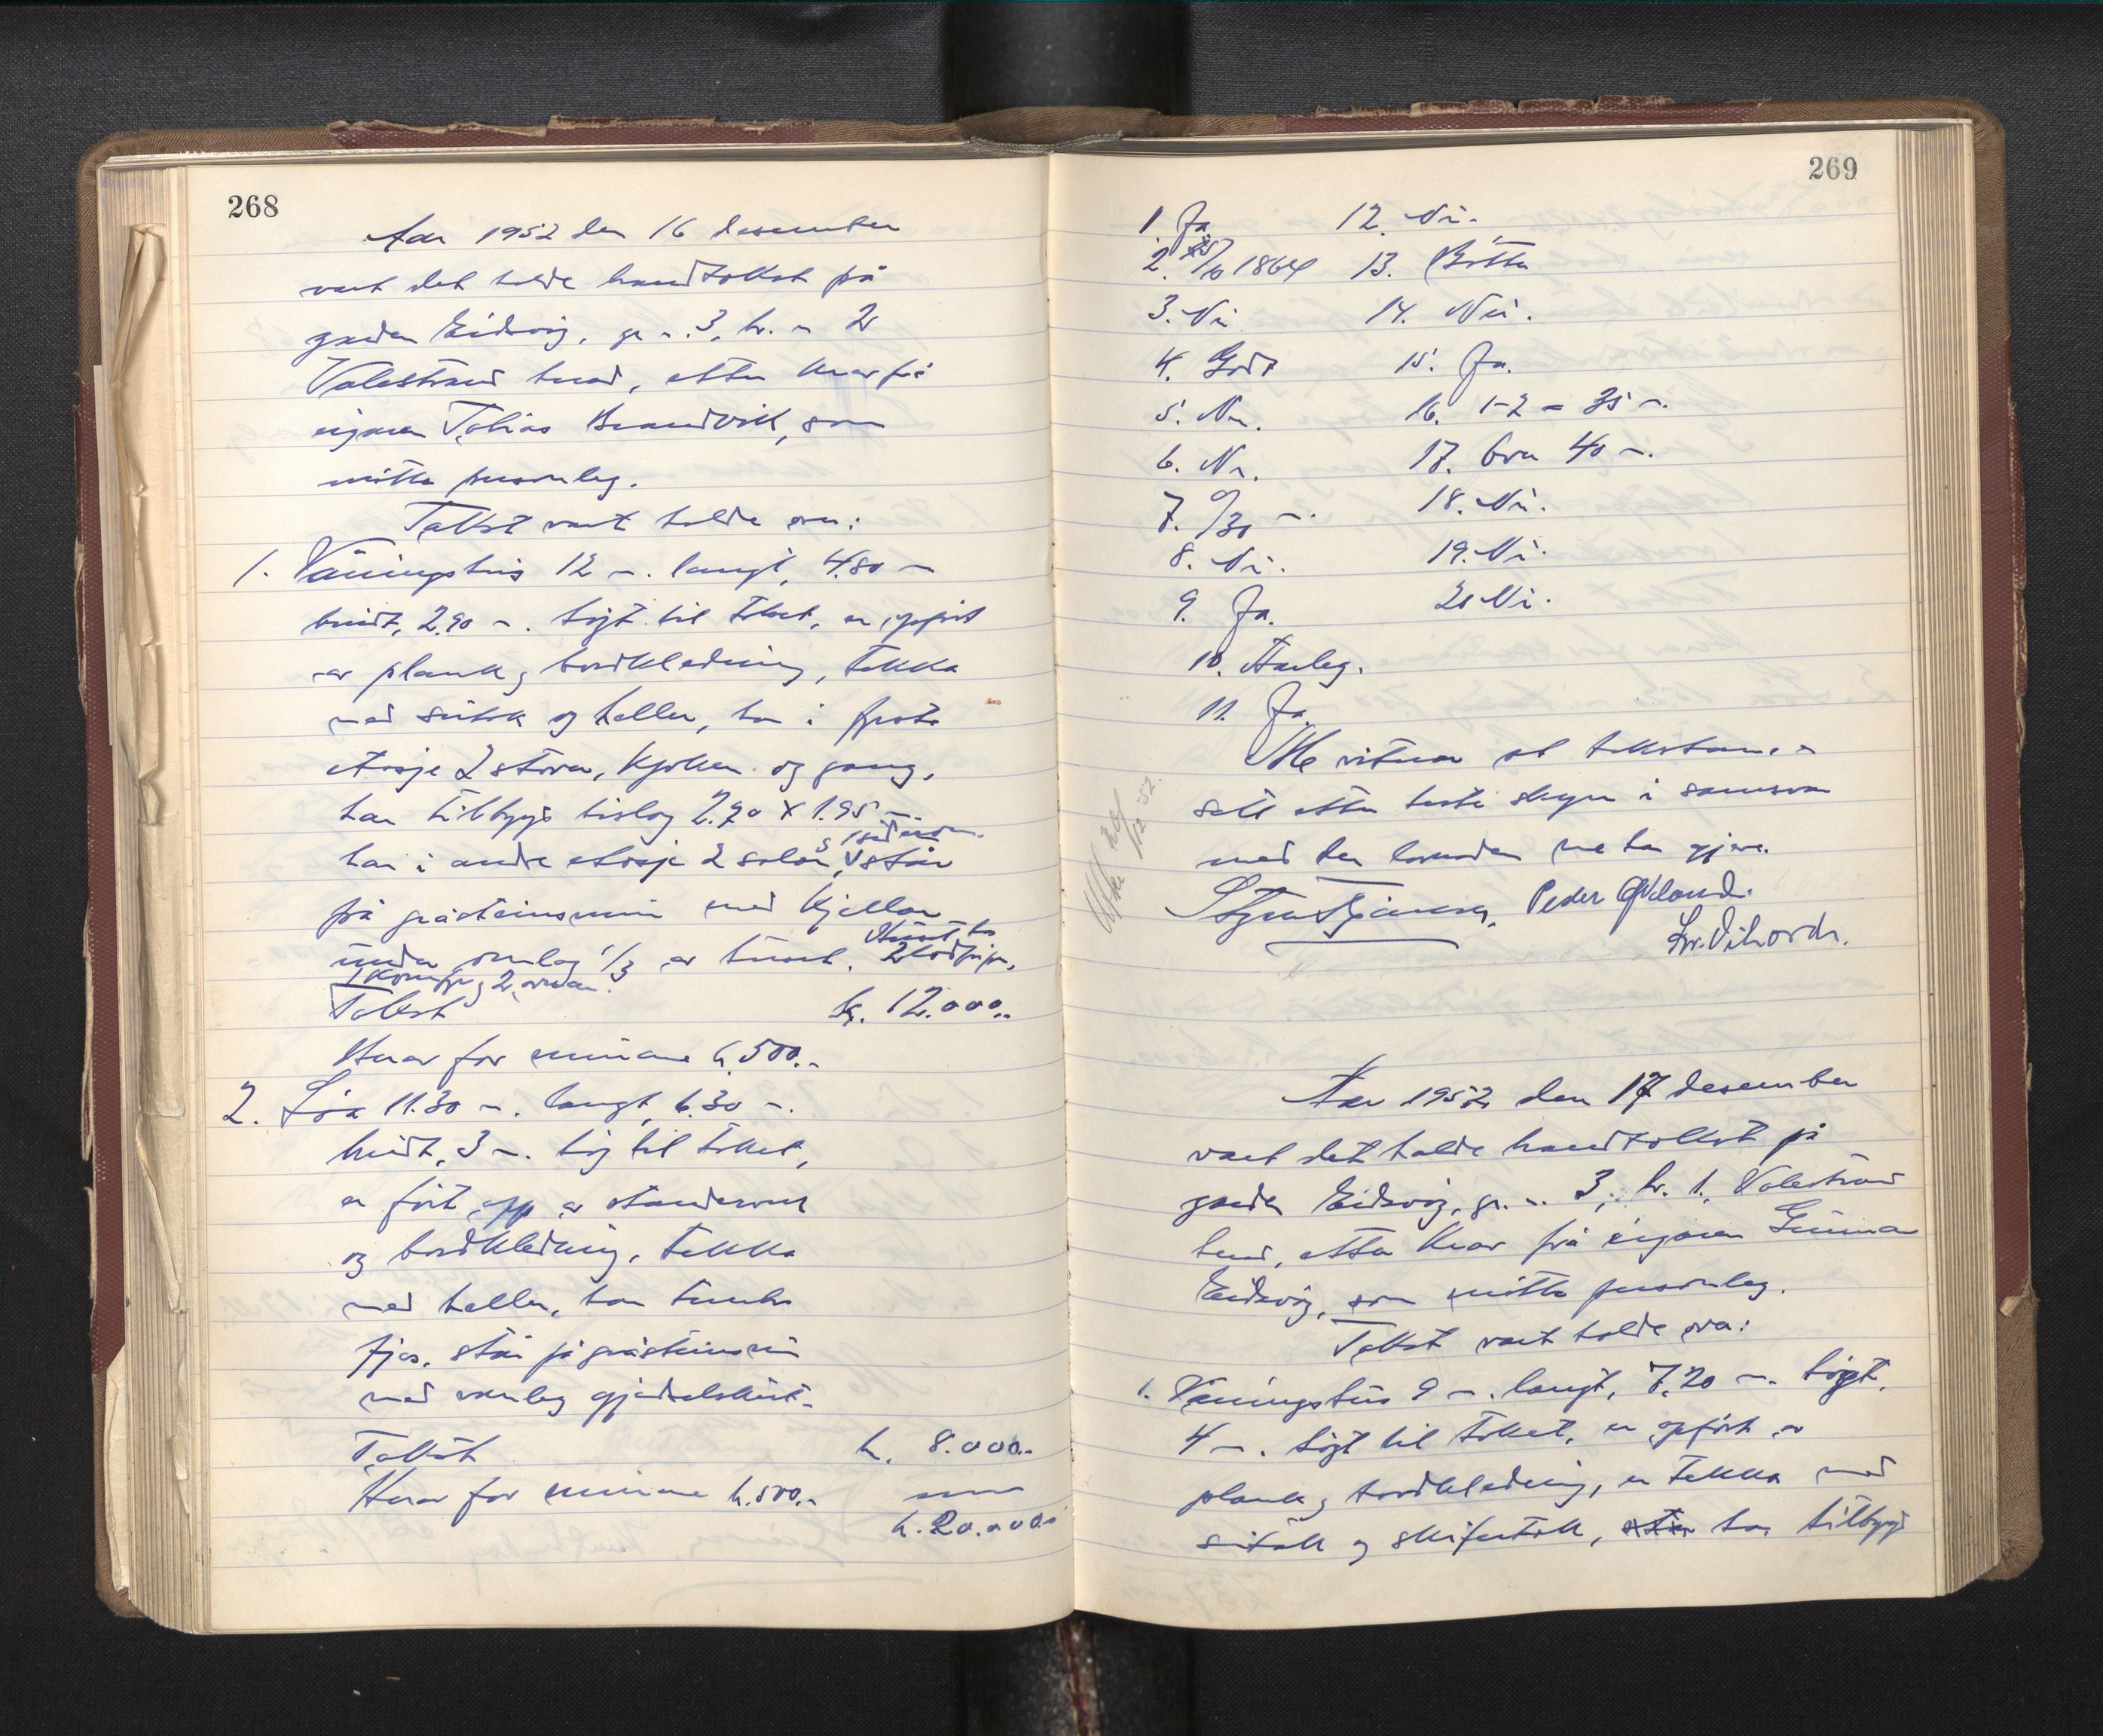 268
Aar 1952 den 16 desember
vart det halde brandtakst på
garden Eidsvåg, gr. n. 3, br. n. 2
Valestrand herad, etter krav frå
eigaren Tobias Brandvik, som
møtte personleg.
Takst vart halde over:
1. Våningshus 12 m. langt, 4.80 m
breidt, 2.90 m. høgt til taket, er oppført
av plank og bordkledning, tekka
med sutak og heller, har i fyrste
etasje 2 stover, kjøken og gang,
har tilbygg bislag 2.70 x 1.95 m.
har i andre etasje 2 salar, står
på gråsteinsmur med kjellar
under omlag 1/3 av huset. Huset har 2 loddpiper,
1 komfyr og 2 omnar.
Takst kr. 12.000.-
Herav for murane kr. 500.-
2. Løa 11.30 m. langt, 6.30 m.
breidt, 3 m. høg til taket,
er ført opp av standerverk
og bordkledning, tekka
med heller, har
fjos, står på gråsteinsmur
med vanleg gjødselskut.
Takst kr. 8.000.-
Herav for murane kr. 500.-
kr. 20.000.-
269
1. Ja 12. Nei.
2. 1864 13. Bøtte
3. Nei 14. Nei.
4. Godt 15. Ja.
5. Nei. 16. 1-2 = 35 m.
6. Nei. 17. Over 40 m.
7. 0/30 m. 18. Nei.
8. Nei. 19. Nei.
9. Ja. 20 Nei.
10. Farleg.
11. Ja.
Me vitnar at takstane er
sett etter beste skyn i samsvar
med den lovnaden me har gjeve.
Peder Økland.
Aar 1952 den 17 desember
vart det halde brandtakst på
garden Eidsvåg, gr. n. 3, br. 1, Valestrand
herad, etter krav frå eigaren Gunnar
Eidsvåg, som møtte personleg.
Takst vart halde over:
1. Våningshus 9 m. langt, 7.20 m. høgt,
4 m. høgt til taket, er oppført av
plank og bordkledning, er tekka med
sutak og skifertak, har tilbygg